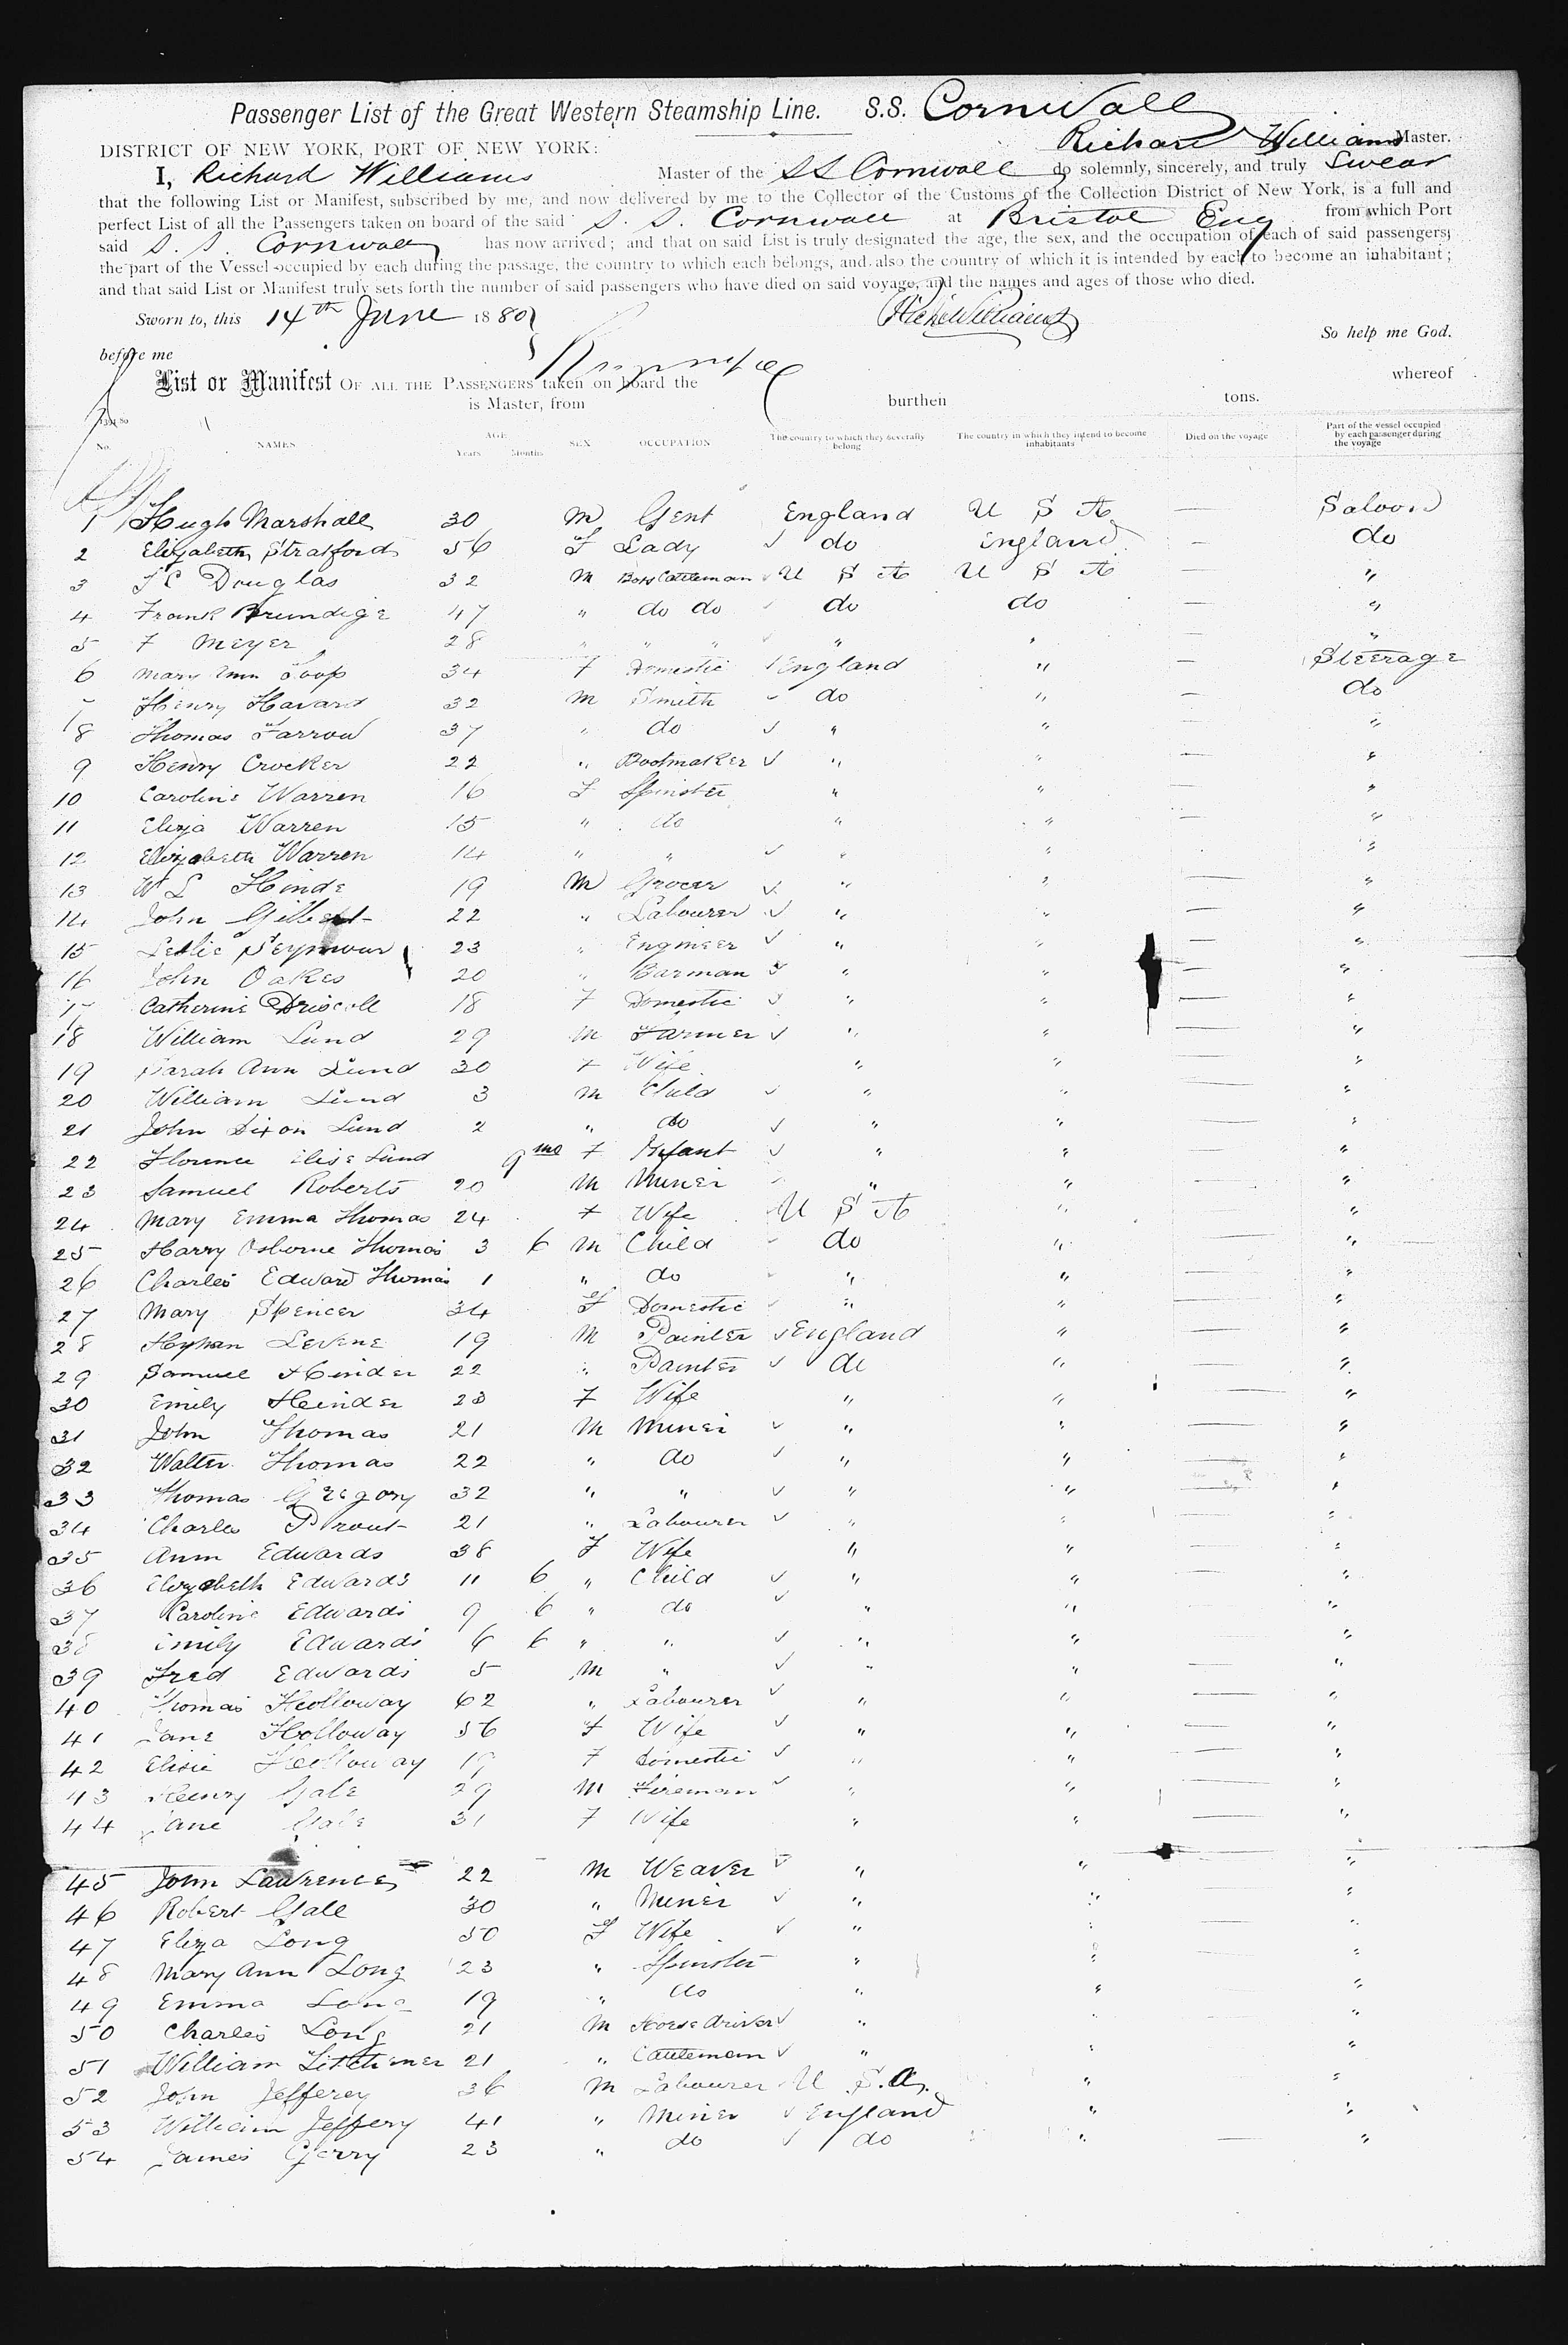 Passenger List of the Great Western Steamship Line. S.S. Cornwall
Richard Williams Master.
DISTRICT OF NEW YORK, PORT OF NEW YORK:
I, Richard Williams Master of the SS Cornwall do solemnly, sincerely, and truly Swear
that the following List or Manifest, subscribed by me, and now delivered by me to the Collector of the Customs of the Collection District of New York, is a full and
perfect List of all the Passengers taken on board of the said S. S. Cornwall at Bristol Eng from which Port
said S. S. Cornwall has now arrived; and that on said List is truly designated the age, the sex, and the occupation of each of said passengers;
the part of the Vessel occupied by each during the passage, the country to which each belongs, and also the country of which it is intended by each to become an inhabitant;
and that said List or Manifest truly sets forth the number of said passengers who have died on said voyage, and the names and ages of those who died.
Sworn to, this 14th June 1880 Richd Williams
So help me God.
before me
List or Manifest OF ALL THE PASSENGERS taken on board the whereof
is Master, from burthen tons.
No. NAMES AGE Years Months SEX OCCUPATION The country to which they severally belong The country in which they intend to become inhabitants Died on the voyage Part of the vessel occupied by each passenger during the voyage
1 Hugh Marshall 30 M Gent England U S A — Saloon
2 Elizabeth Stratford 56 F Lady do England — do
3 Douglas 32 M Boss Cattleman U S A U S A — "
4 Frank Brundige 47 " do do do do — "
5 F Meyer 28 " " " " " — "
6 Mary Ann 34 F Domestic England " — Steerage
7 Henry Havard 32 M Smith do " — do
8 Thomas Farrow 37 " do " " — "
9 Henry Crocker 22 " Bootmaker " " — "
10 Caroline Warren 16 F Spinster " " — "
11 Eliza Warren 15 " do " " — "
12 Elizabeth Warren 14 " " " " — "
13 W L Hinde 19 M Grocer " " — "
14 John Gilbert 22 " Labourer " " — "
15 Leslie Seymour 23 " Engineer " " — "
16 John Oakes 20 " Barman " " — "
17 Catherine Driscoll 18 F Domestic " " — "
18 William Lund 29 M Farmer " " — "
19 Sarah Ann Lund 30 F Wife " " — "
20 William Lund 3 M Child " " — "
21 John Dixon Lund 2 " do " " — "
22 Florence Elise Lund 9 mo F Infant " " — "
23 Samuel Roberts 20 M Miner " " — "
24 Mary Emma Thomas 24 F Wife U S A " — "
25 Harry Osborne Thomas 3 6 M Child do " — "
26 Charles Edward Thomas 1 " do " " — "
27 Mary Spencer 34 F Domestic " " — "
28 Hyman Levene 19 M Painter England " — "
29 Samuel Hinder 22 " Painter do " — "
30 Emily Heinder 23 F Wife " " — "
31 John Thomas 21 M Miner " " — "
32 Walter Thomas 22 " do " " — "
33 Thomas Gregory 32 " " " " — "
34 Charles Prout 21 " Labourer " " — "
35 Ann Edwards 38 F Wife " " — "
36 Elizabeth Edwards 11 6 " Child " " — "
37 Caroline Edwards 9 6 " do " " — "
38 Emily Edwards 6 6 " " " " — "
39 Fred Edwards 5 M " " " — "
40 Thomas Holloway 62 " Labourer " " — "
41 Jane Holloway 56 F Wife " " — "
42 Elisie Holloway 19 F Domestic " " — "
43 Henry Gale 29 M Fireman " " — "
44 Jane Gale 31 F Wife " " — "
45 John Lawrence 22 M Weaver " " — "
46 Robert Gale 30 " Miner " " — "
47 Eliza Long 50 F Wife " " — "
48 Mary Ann Long 23 " Spinster " " — "
49 Emma Long 19 " do " " — "
50 Charles Long 21 M Horse driver " " — "
51 William 21 " Cattleman " " — "
52 John Jefferey 36 M Labourer U S.A. " — "
53 William Jeffery 41 " Miner England " — "
54 James Gerry 23 " do do " — "